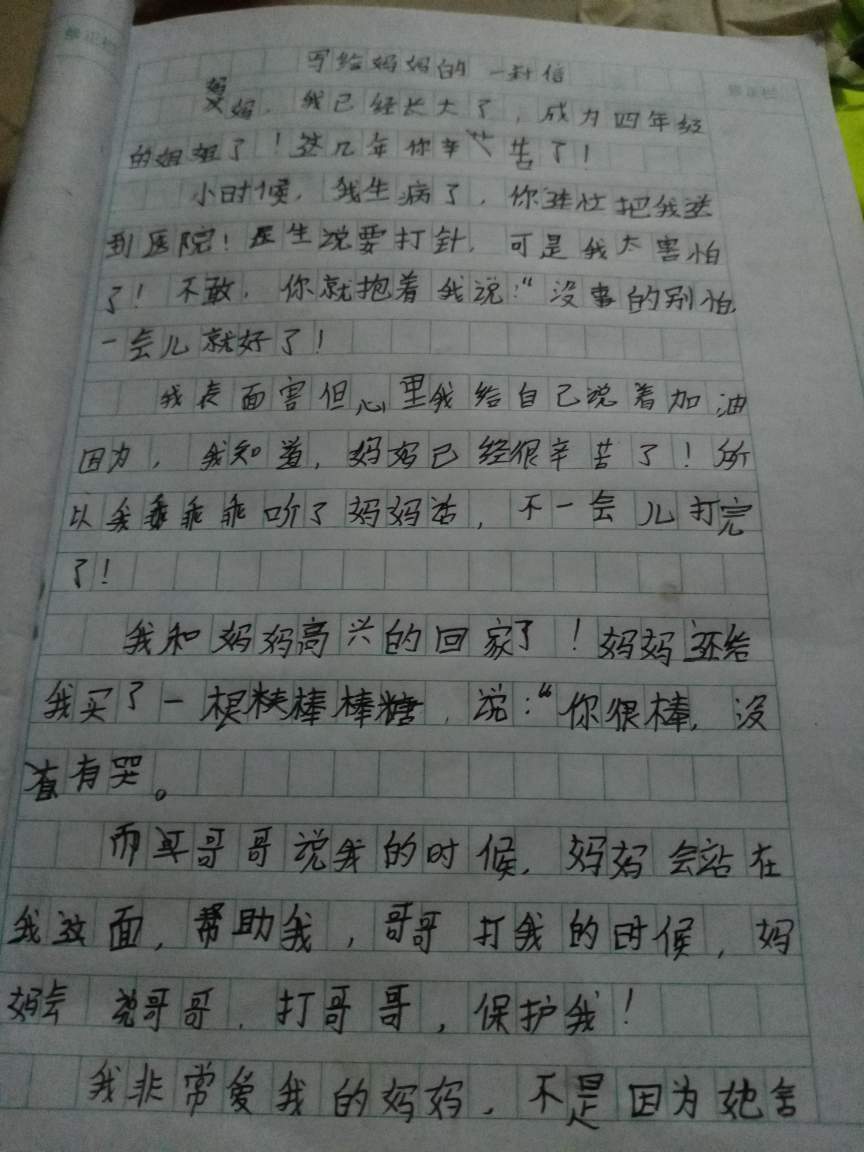 写给妈妈的一封信
妈妈，我已经长大了，成为四年级
的姐姐了！这几年你辛苦了！
小时候，我生病了，你连忙把我送
到医院！医生说要打针，可是我太害怕
了！不敢，你就抱着我说：“没事的别怕，
一会儿就好了！
我表面害但心里我给自己说着加油
因为，我知道，妈妈已经很辛苦了！所
以我乖乖乖听了妈妈话，不一会儿打完
了！
我和妈妈高兴的回家了！妈妈还给
我买了一根棒棒糖，说：“你很棒，没
有哭。
而且哥哥说我的时候，妈妈会站在
我这面，帮助我，哥哥打我的时候，妈
妈会说哥哥，打哥哥，保护我！
我非常爱我的妈妈，不是因为她舍